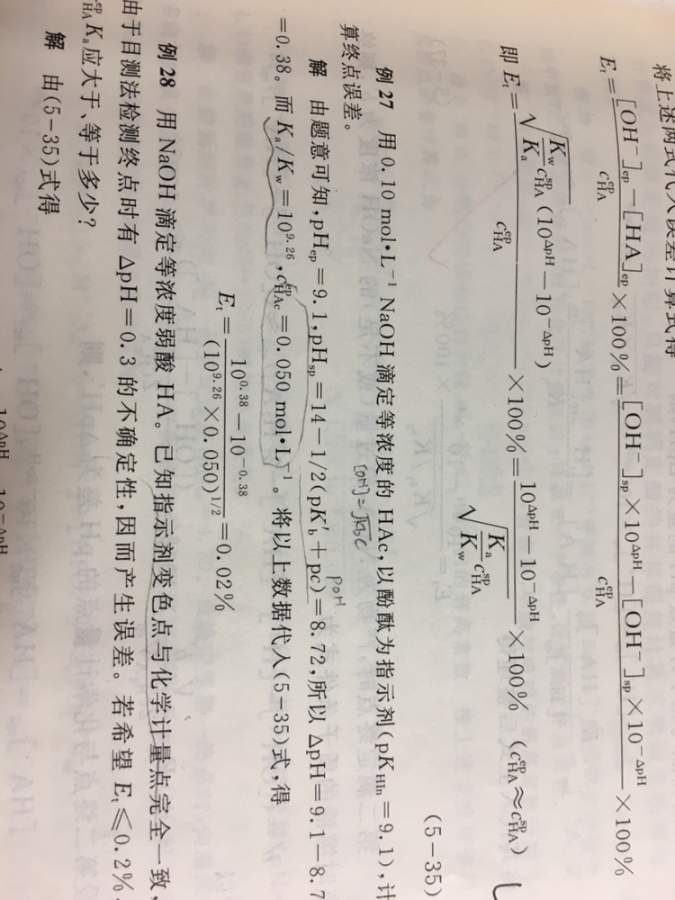 将上述两式代入误差计算式得
E_t = ([OH⁻]_ep − [HA]_ep) / c_HA^ep × 100% = ([OH⁻]_sp × 10^ΔpH − [OH⁻]_sp × 10^−ΔpH) / c_HA^ep × 100%
即 E_t = √(K_w/K_a c_HA^sp) (10^ΔpH − 10^−ΔpH) / c_HA^ep × 100% = (10^ΔpH − 10^−ΔpH) / √(K_a/K_w c_HA^sp) × 100% (c_HA^ep ≈ c_HA^sp)
(5-35)
例 27 用 0.10 mol·L⁻¹ NaOH 滴定等浓度的 HAc,以酚酞为指示剂(pK_HIn = 9.1),计
算终点误差。
解 由题意可知,pH_ep = 9.1,pH_sp = 14 − 1/2(pK′_b + pc) = 8.72,所以 ΔpH = 9.1 − 8.7
pOH
= 0.38。而 K_a/K_w = 10^9.26, c_HAc^ep = 0.050 mol·L⁻¹。将以上数据代入(5-35)式,得
E_t = (10^0.38 − 10^−0.38) / (10^9.26 × 0.050)^1/2 = 0.02%
例 28 用 NaOH 滴定等浓度弱酸 HA。已知指示剂变色点与化学计量点完全一致,
由于目测法检测终点时有 ΔpH = 0.3 的不确定性,因而产生误差。若希望 E_t ≤ 0.2%,
c_HA^ep K_a 应大于、等于多少?
解 由(5-35)式得
10^ΔpH 10^−ΔpH